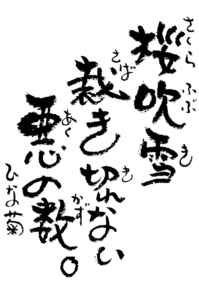 さくらふぶき
桜吹雪
さばき
裁き切れない
あくかず
悪の数。
ひな菊